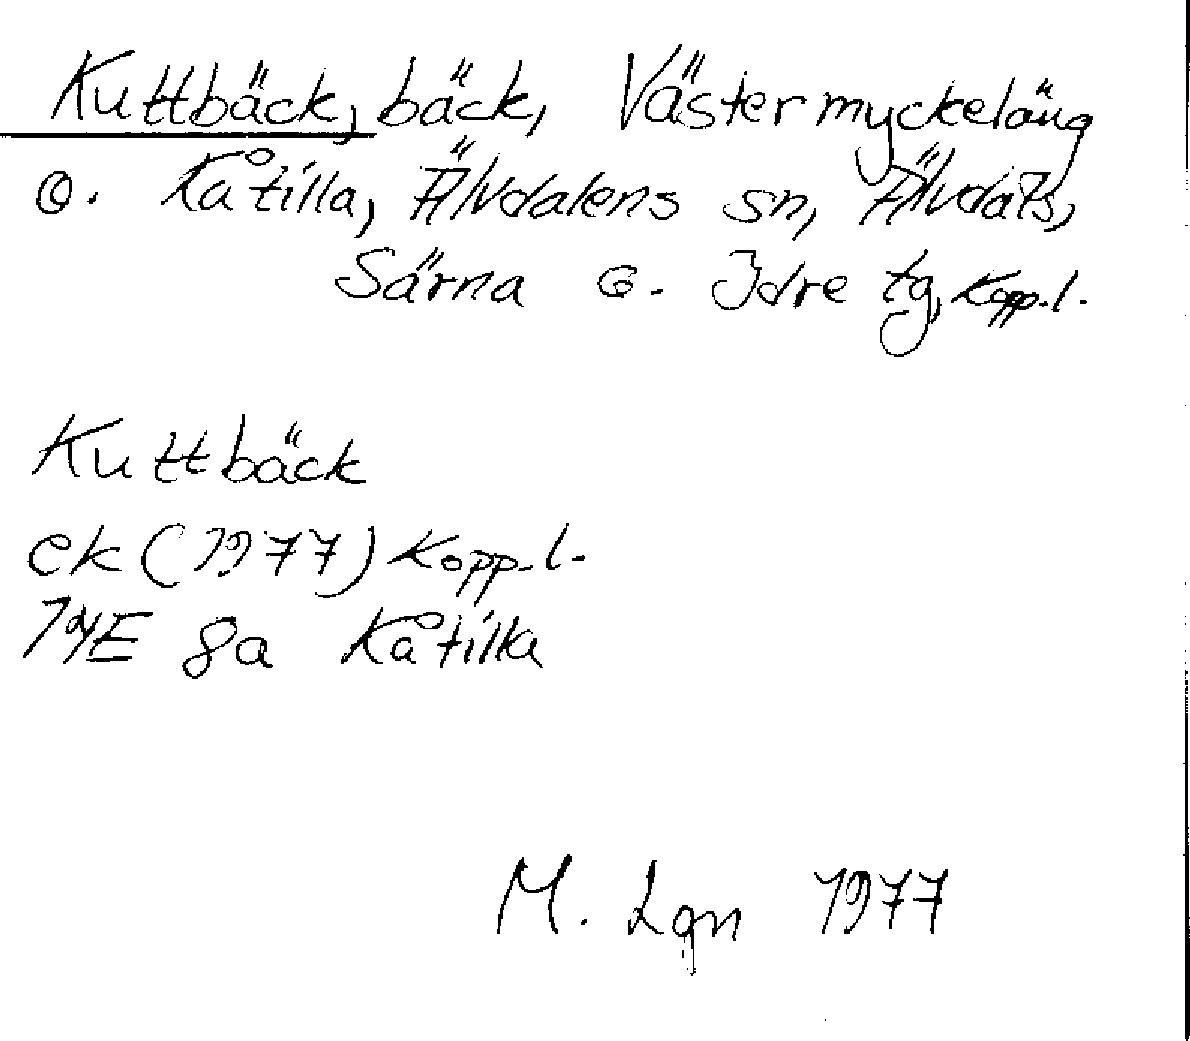 Kuttbäck, bäck, Västermyckeläng
o. Kåtilla, Älvdalens sn, Älvdals,
Särna o. Idre tg, Kopp.l.
Kuttbäck
ek (1977) Kopp.l.
14E 8a Kåtilla
M. Lgn 1977